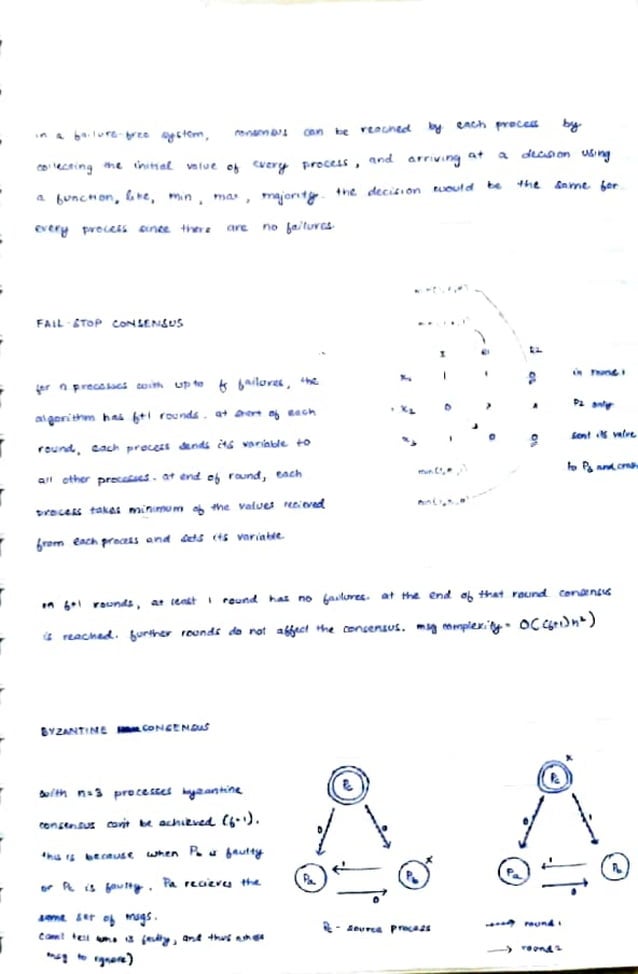 in a failure-free system, consensus can be reached by each process by
collecting the initial value of every process, and arriving at a decision using
a function, like, min, max, majority. the decision would be the same for
every process since there are no failures
FAIL-STOP CONSENSUS
for n processes with upto f failures, the
algorithm has f+1 rounds. at start of each
round, each process sends its variable to
all other processes. at end of round, each
process takes minimum of the values recieved
from each process and sets its variable
I R1 R2
x₁ 1 1 0
x₂ 0
x₃ 1 0 0
in round 1
P2 only
sent its value
to P3 and crash
in f+1 rounds, at least 1 round has no failures. at the end of that round consensus
is reached. further rounds do not affect the consensus. msg complexity = O((f+1)n²)
BYZANTINE CONSENSUS
with n=3 processes byzantine
consensus can't be achieved (f=1).
this is because when Pb is faulty
or Pc is faulty, Pa recieves the
same set of msgs.
(can't tell who is faulty, and thus which
msg to ignore)
Pc
0 0
Pa 1 Pb x
0
Pc - source process
Pc x
0 1
Pa 1 Pb
0
round 1
round 2